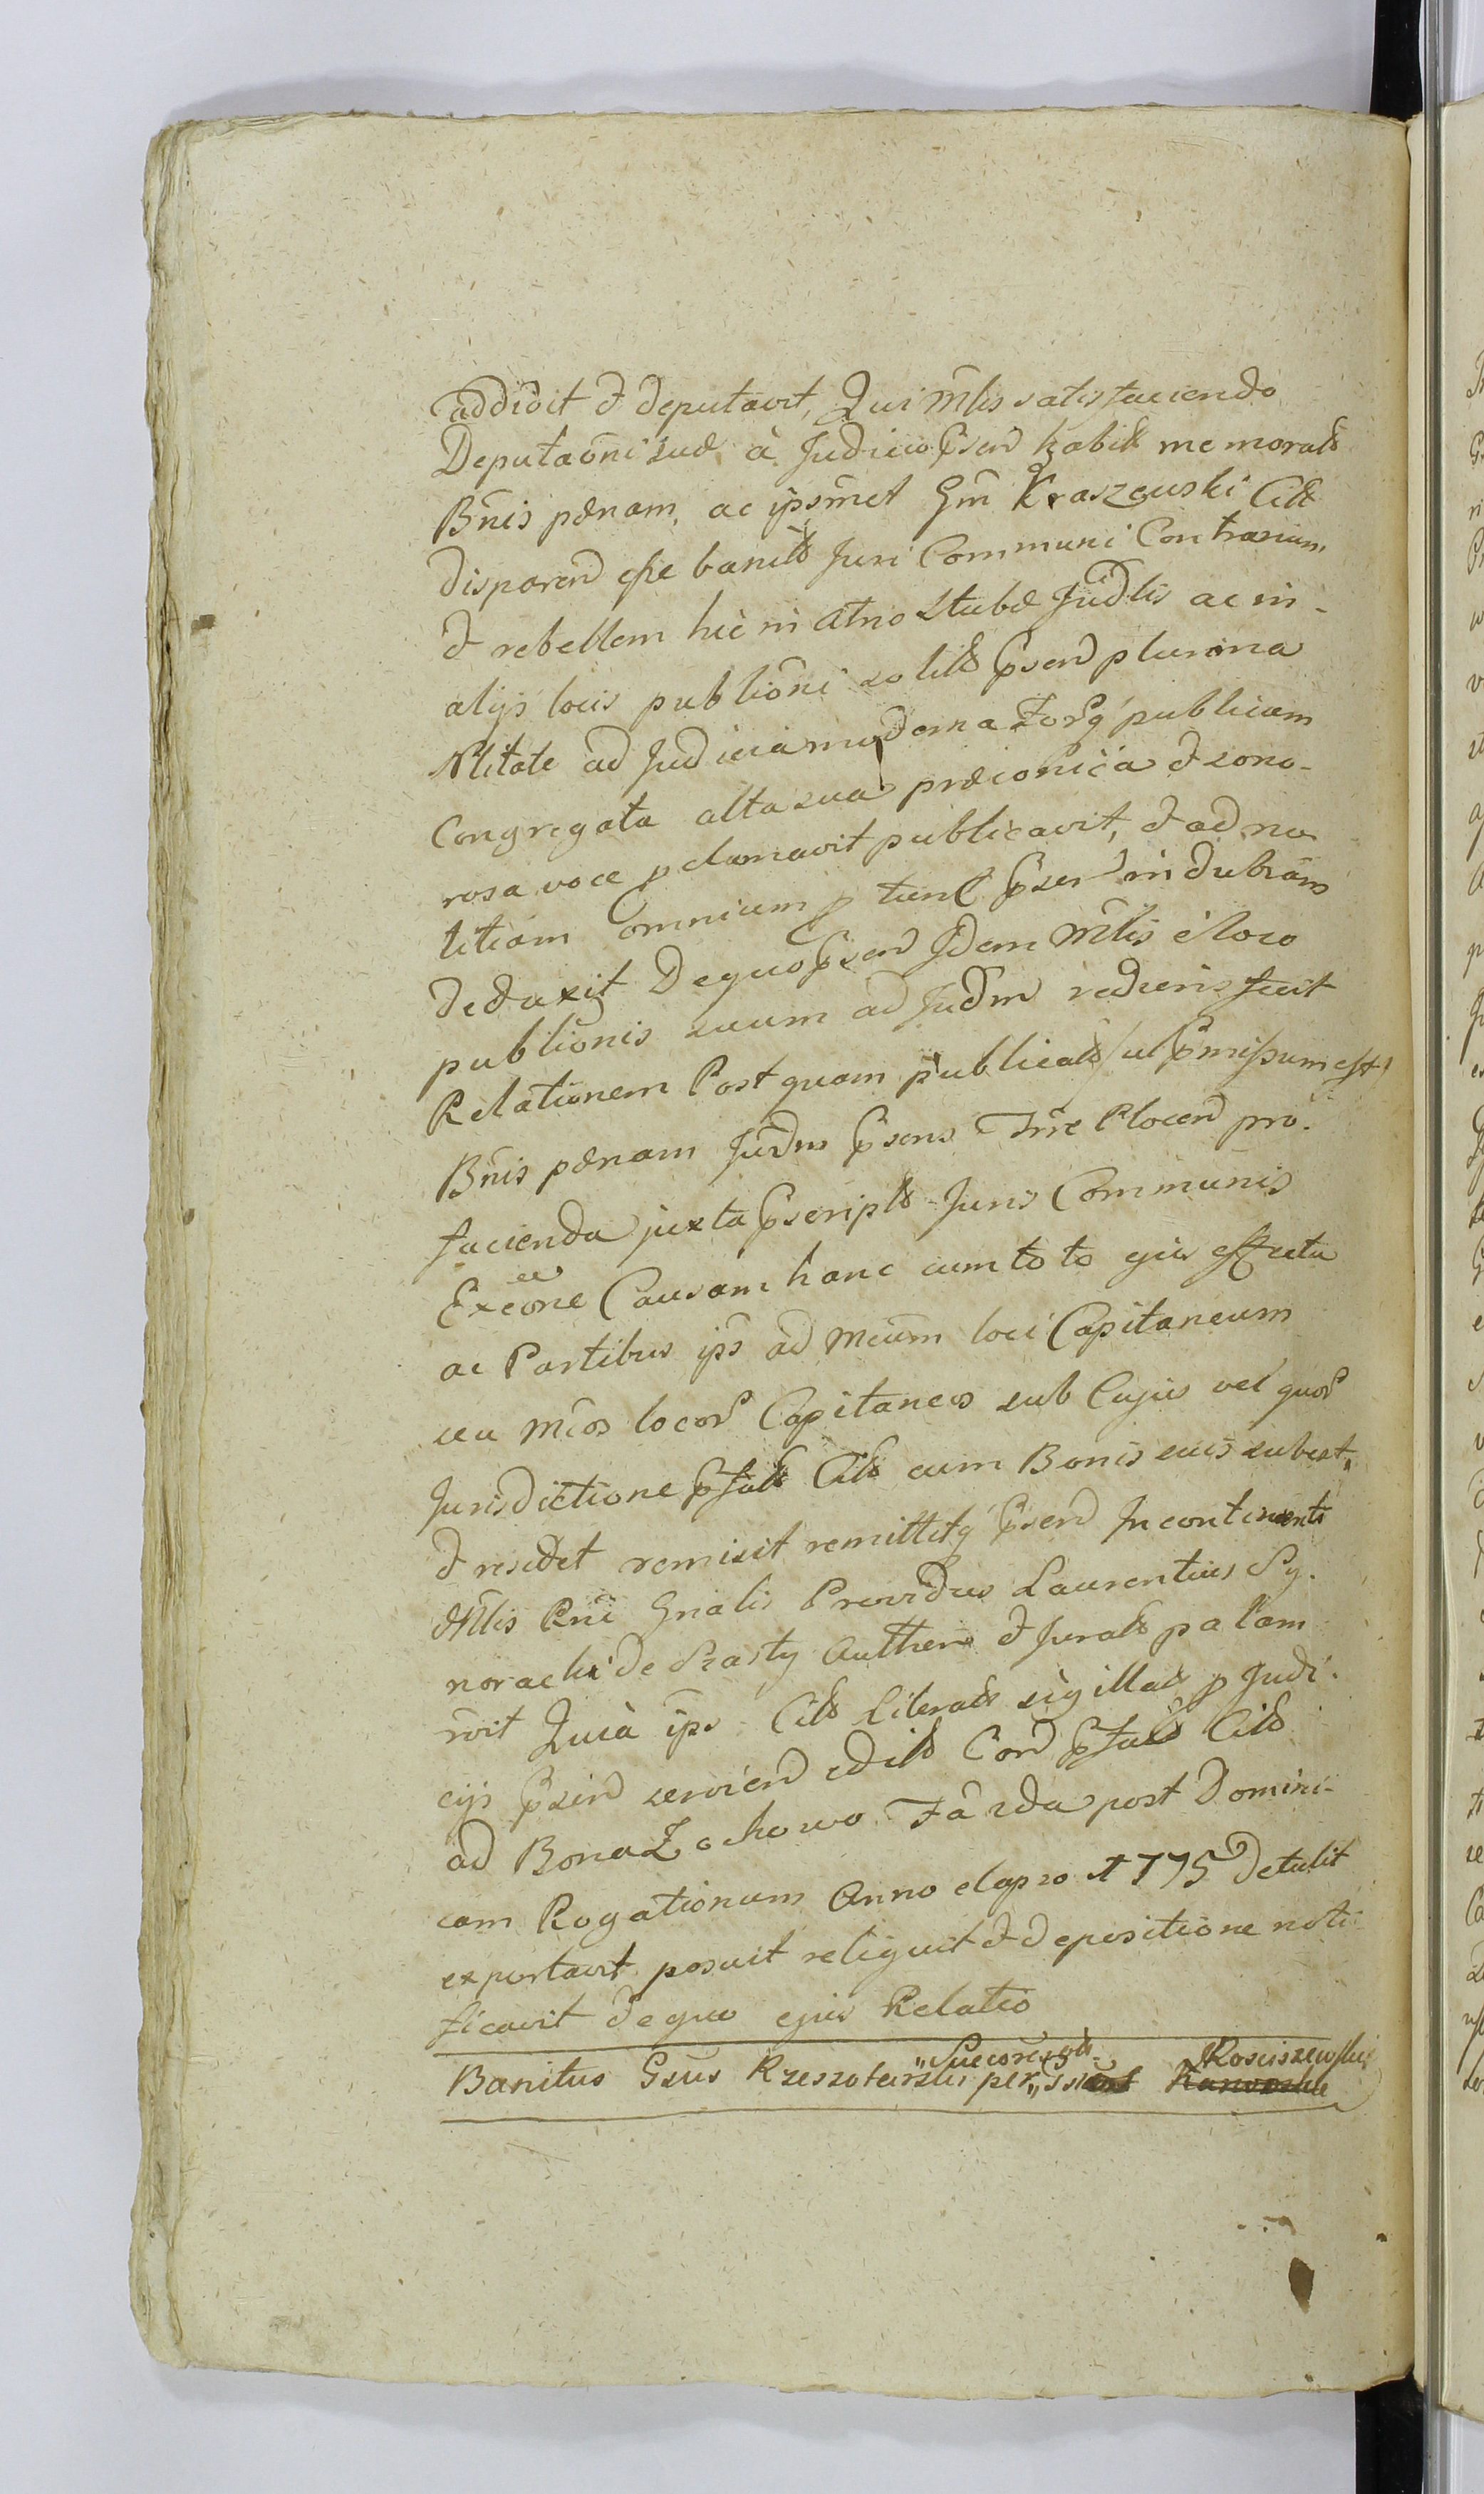 addidit & deputavit, Qui Mlis satisfaciendo
Deputaōni suæ à Judicio Psen habit memorat
Bñis pænam, ac ipsmet Gm Kraszewski Citt
disparen esse banitt Juri Communi Contrarium
& rebellem hic in Atrio Stubæ Judlis ac in
alijs locis publiōni solitt Psen plurima
Nlitate ad Judicia moderna Forq publicum
Congregata alta sua præconica & sono-
rosa voce pclamavit publicavit, & ad no
titiam omnium p tunc Psen indubiam
deduxit De quo Psen Idem Mlis è loco
publionis suum ad Judm rediens fecit
Relationem Post quam publicatt (ut Pmissum est)
Bñis pænam Judm Psens Trre Plocen pro
facienda juxta Pscriptt Juris Communis
Exeōne Causam hanc cum toto ejus effectu
ac Partibus ips ad Mcum loci Capitaneum
seu Mcos locor Capitaneos sub Cujus vel quor
Jurisdictione Pfatt Citt cum Bonis suis subest,
& residet remisit remittitq Psen In continenti
Mlis Rni Gnalis Providus Laurentius Sy-
noracki de Szasty Authen & Juratt palam
vit Quia ips Citt Literatt sigillatt p Judi-
cijs Psen servien editt Con Pfatt Citt
ad Bona Zochowo Fa 2da post Domini-
cam Rogationum Anno elapso 1775 detulit
exportavit posuit reliquit & depositione noti
ficavit de quo ejus Relatio
Banitus Gsus Rzeszotarski per Succores Gsi Rosciszewski